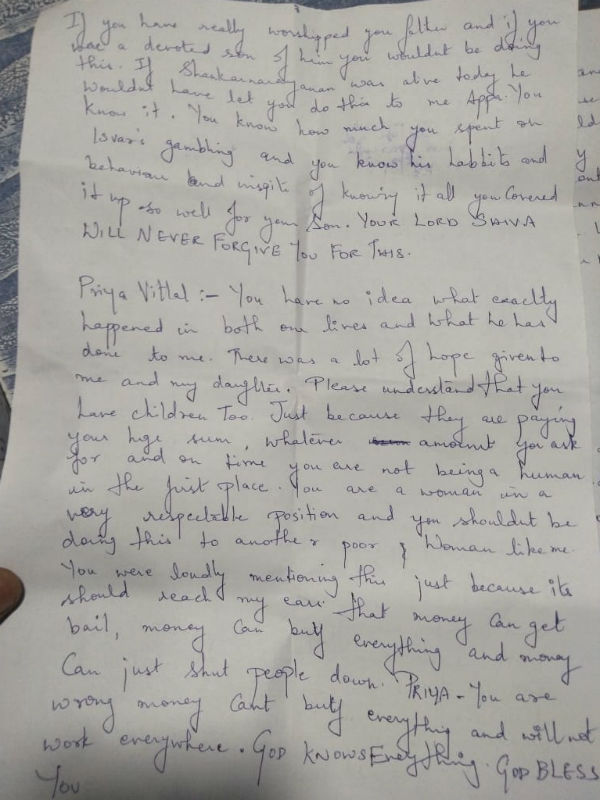 If you have really worshipped you father and if you
was a devoted son of him you wouldnt be doing
this. If Shankarnarayanan was alive today he
wouldnt have let you do this to me Appa. You
know it. You know how much you spent on
Isvar's gambling and you know his habbits and
behaviour and inspite of knowing it all you covered
it up so well for your Son. YOUR LORD SHIVA
WILL NEVER FORGIVE YOU FOR THIS.
Priya Vittal :- You have no idea what exactly
happened in both our lives and what he has
done to me. There was a lot of hope given to
me and my daughter. Please understand that you
have children Too. Just because they are paying
your huge sum, whatever amount you ask
for and on time you are not being a human
in the first place. You are a woman in a
very respectable position and you shouldnt be
doing this to another poor Woman like me.
You were loudly mentioning this just because its
should reach my ears that money can get
bail, money can buy everything and money
Can just shut people down. PRIYA - You are
wrong money cant buy everything and will not
work everywhere. GOD KNOWS Everything. GOD BLESS
You